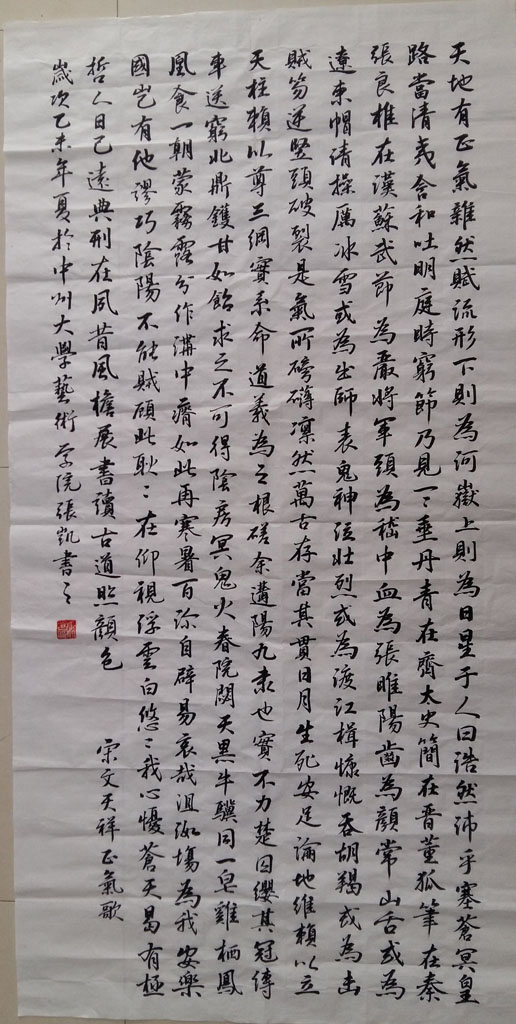 天地有正氣雜然賦流形下則為河嶽上則為日星于人曰浩然沛乎塞蒼冥皇
路當清夷含和吐明庭時窮節乃見一一垂丹青在齊太史簡在晉董狐筆在秦
張良椎在漢蘇武節為嚴將軍頭為嵇中血為張睢陽齒為顏常山舌或為
遼東帽清操厲冰雪或為出師表鬼神泣壯烈或為渡江楫慷慨吞胡羯或為击
賊笏逆豎頭破裂是氣所磅礴凜然萬古存當其貫日月生死安足論地維賴以立
天柱賴以尊三綱實系命道義為之根嗟余遘陽九隶也實不力楚囚纓其冠傳
車送窮北鼎鑊甘如飴求之不可得陰房冥鬼火春院閟天黑牛驥同一皂雞栖鳳
凰食一朝蒙霧露分作溝中瘠如此再寒暑百沴自辟易哀哉沮洳場為我安樂
國岂有他謬巧陰陽不能賊顾此耿〻在仰視浮雲白悠〻我心憂蒼天曷有极
哲人日已遠典刑在夙昔風檐展書讀古道照顏色
宋文天祥正氣歌
歲次乙未年夏於中州大學藝術学院張凱書之